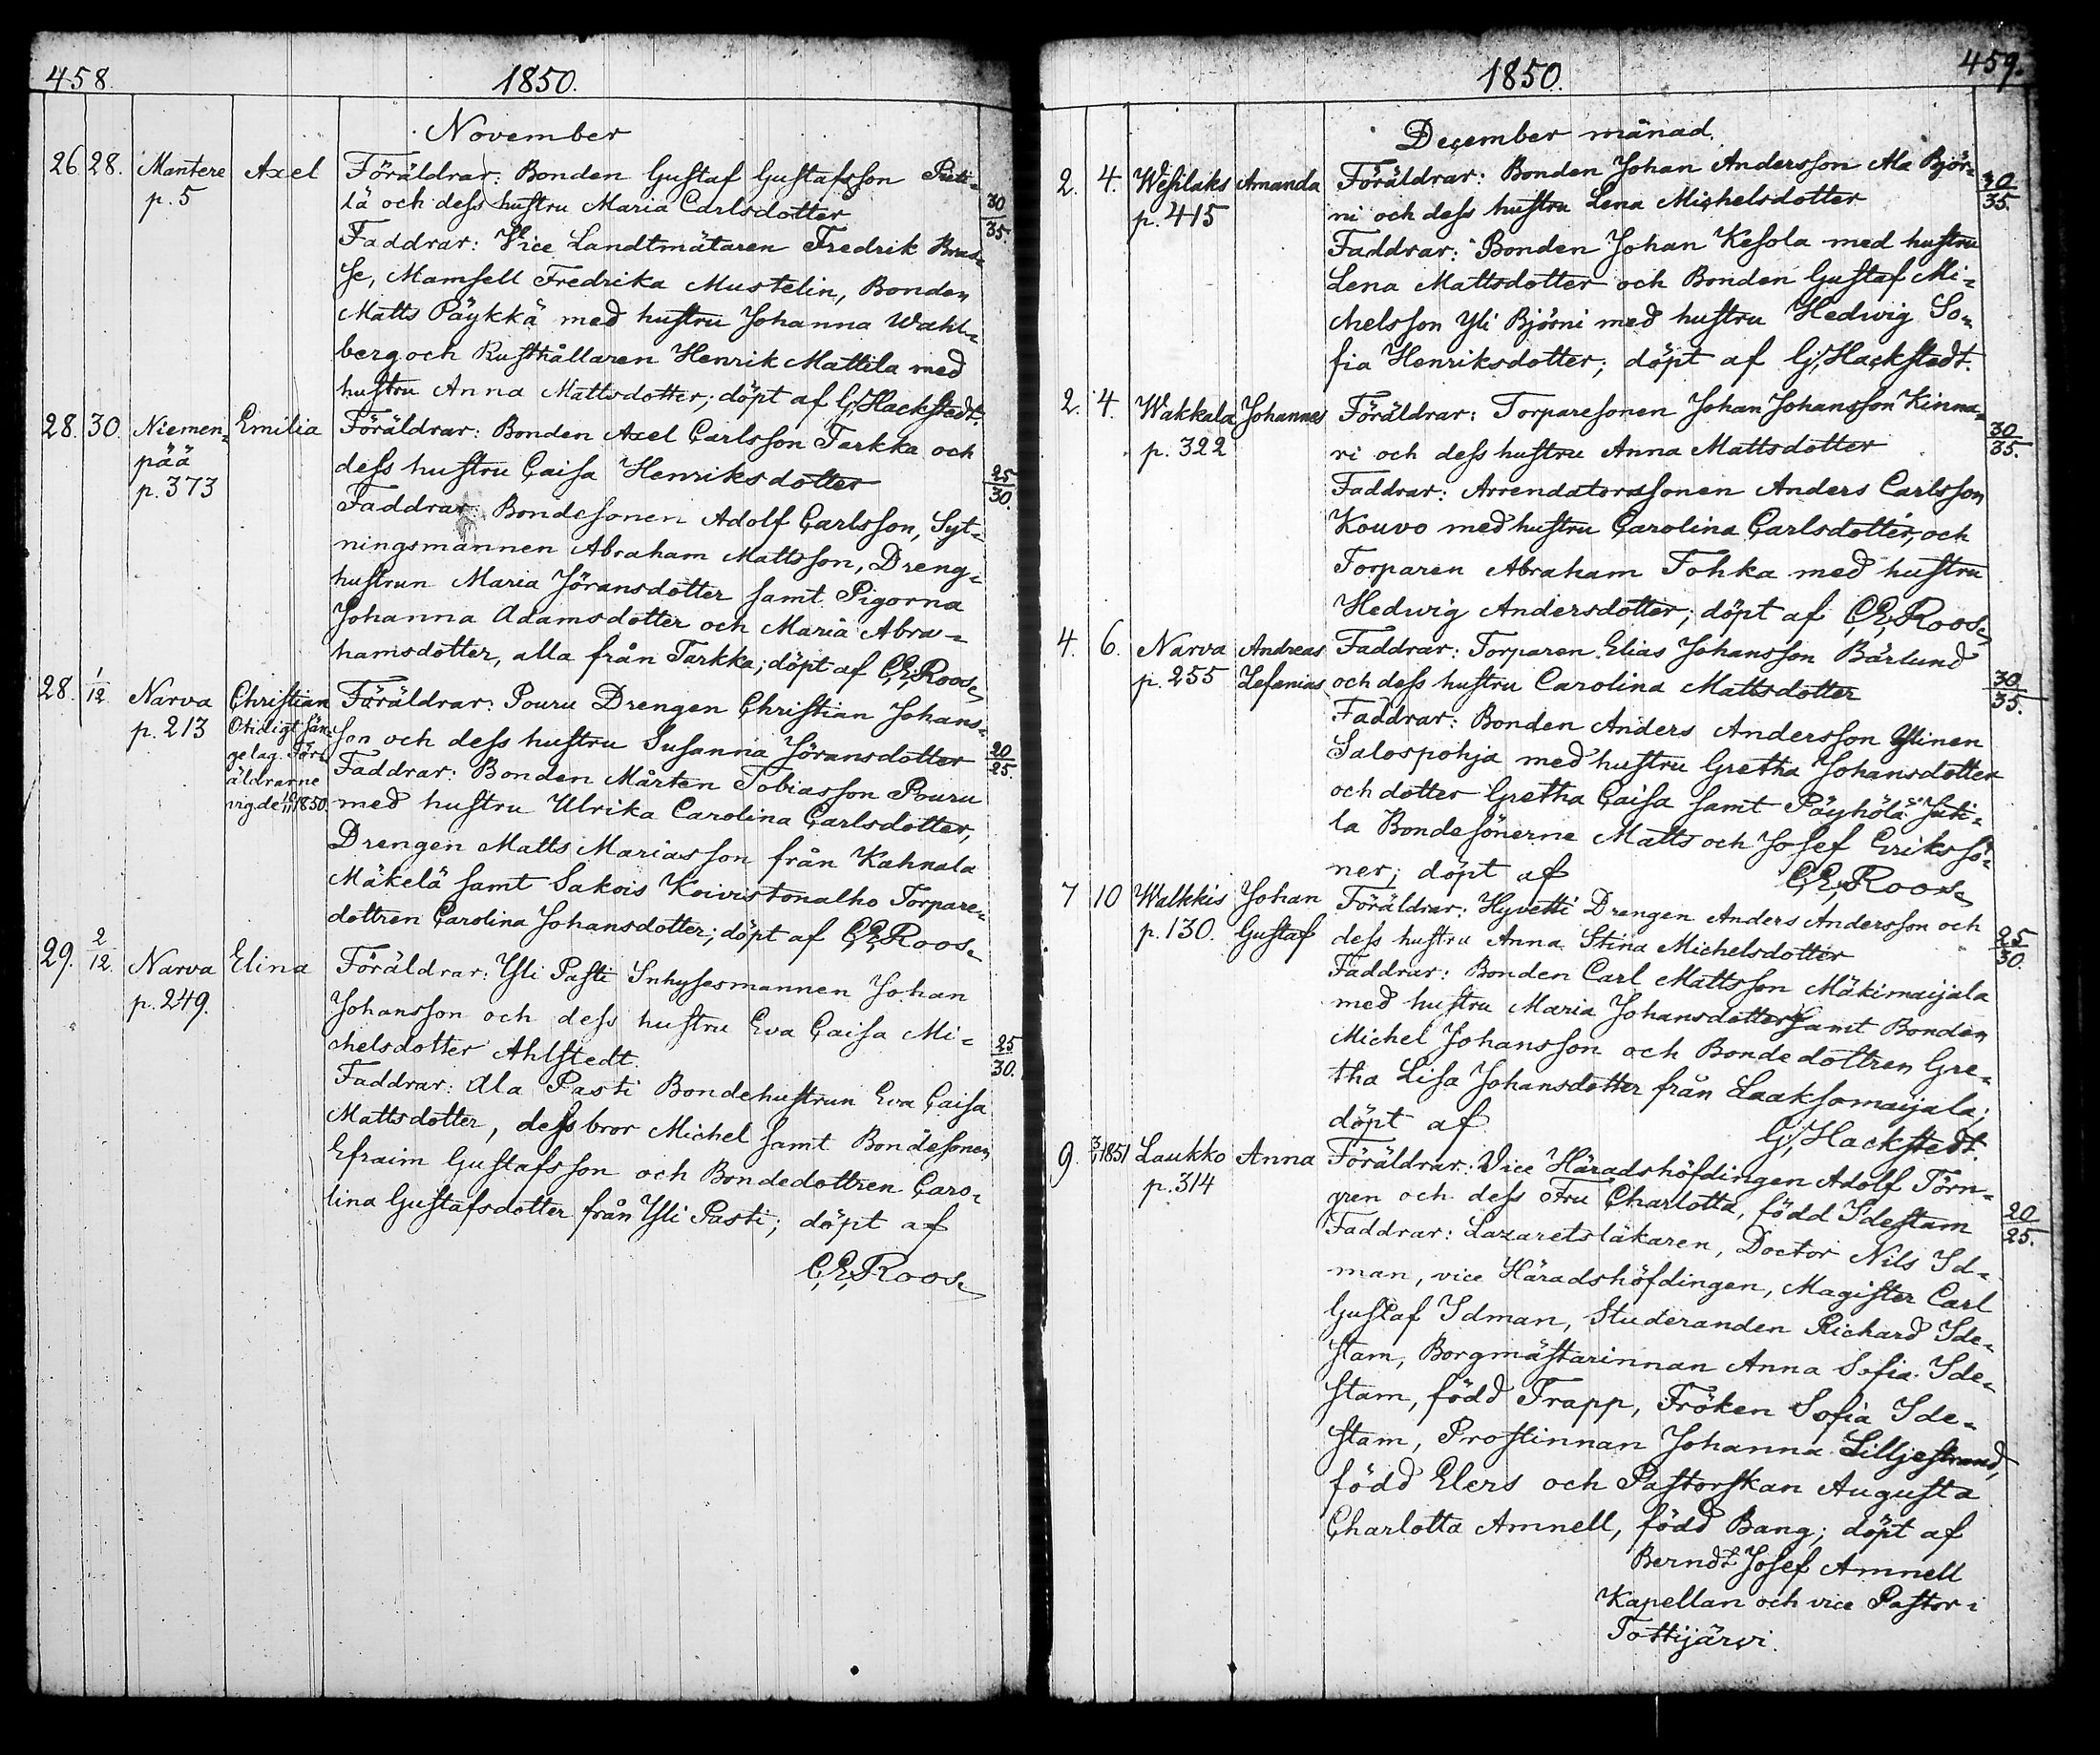 458.
1850.
November
26 28. Mantere Axel Föräldrar: Bonden Gustaf Gustafsson Pieti-
p. 5 lä och dess hustru Maria Carlsdotter 30/35.
Faddrar: Vice Landtmätaren Fredrik
se, Mamsell Fredrika Mustelin, Bonden
Matts Päykkä med hustru Johanna Wahl-
berg och Rusthållaren Henrik Mattila med
hustru Anna Mattsdotter; döpt af G, Hackstedt.
28. 30. Niemen- Emilia Föräldrar: Bonden Axel Carlsson Tarkka och
pää dess hustru Caisa Henriksdotter 25/30.
p. 373
Faddrar: Bondesonen Adolf Carlsson, Syt-
ningsmannen Abraham Mattsson, Dreng-
hustrun Maria Jöransdotter samt Pigorna
Johanna Adamsdotter och Maria Abra-
hamsdotter, alla från Tarkka; döpt af C, E, Roos
28. 1/12 Narva Christian Föräldrar: Pouru Drengen Christian Johans-
p. 213 Otidigt sän- son och dess hustru Susanna Jöransdotter 20/25.
gelag. För- Faddrar: Bonden Mårten Tobiasson Pouru
äldrarne
vigde 10/11 1850. med hustru Ulrika Carolina Carlsdotter,
Drengen Matts Mariasson från Kahnala
Mäkelä samt Sakois Koivistonalho Torpare-
dottren Carolina Johansdotter; döpt af C, E, Roos
29. 2/12. Narva Elina Föräldrar: Yli Pasti Inhysesmannen Johan
p. 249. Johansson och dess hustru Eva Caisa Mi-
chelsdotter Ahlstedt. 25/30.
Faddrar: Ala Pasti Bondehustrun Eva Caisa
Mattsdotter, dess bror Michel samt Bondesonen
Efraim Gustafsson och Bondedottren Caro-
lina Gustafsdotter från Yli Pasti; döpt af
C, E, Roos
459.
1850.
December månad.
2. 4. Wesilaks Amanda Föräldrar: Bonden Johan Andersson Ala Björ-
p. 415 ni och dess hustru Lena Michelsdotter 30/35.
Faddrar: Bonden Johan Kesola med hustru
Lena Mattsdotter och Bonden Gustaf Mi-
chelsson Yli Björni med hustru Hedwig So-
fia Henriksdotter; döpt af G, Hackstedt.
2. 4. Wakkala Johannes Föräldrar: Torparesonen Johan Johansson Kinna-
p. 322 ri och dess hustru Anna Mattsdotter 30/35.
Faddrar: Arrendatorssonen Anders Carlsson
Kouvo med hustru Carolina Carlsdotter, och
Torparen Abraham Tohka med hustru
Hedwig Andersdotter; döpt af C, E, Roos
4. 6. Narva Andreas Faddrar: Torparen Elias Johansson Bärlund
p. 255 Zefanias och dess hustru Carolina Mattsdotter 30/35.
Faddrar: Bonden Anders Andersson Ylinen
Salospohja med hustru Gretha Johansdotter
och dotter Gretha Caisa samt Päyhölä Juti-
la Bondesönerne Matts och Josef Erikssö-
ner; döpt af C, E, Roos
7 10 Walkkis Johan Föräldrar: Hyvetti Drengen Anders Andersson och
p. 130. Gustaf dess hustru Anna Stina Michelsdotter 25/30.
Faddrar: Bonden Carl Mattsson Mäkimaijala
med hustru Maria Johansdotter samt Bonden
Michel Johansson och Bondedottren Gre-
tha Lisa Johansdotter från Laaksomaijala;
döpt af G, Hackstedt.
9 3/1 1851 Laukko Anna Föräldrar: Vice Häradshöfdingen Adolf Törn-
p. 314 gren och dess Fru Charlotta, född Idestam 20/25.
Faddrar: Lazaretsläkaren, Doctor Nils Id-
man, vice Häradshöfdingen, Magister Carl
Gustaf Idman, Studeranden Richard Ide-
stam, Borgmästarinnan Anna Sofia Ide-
stam, född Trapp, Fröken Sofia Ide-
stam, Prostinnan Johanna Lilljestrand,
född Elers och Pastorskan Augusta
Charlotta Amnell, född Bang; döpt af
Berndt Josef Amnell
Kapellan och vice Pastor i
Tottijärvi.